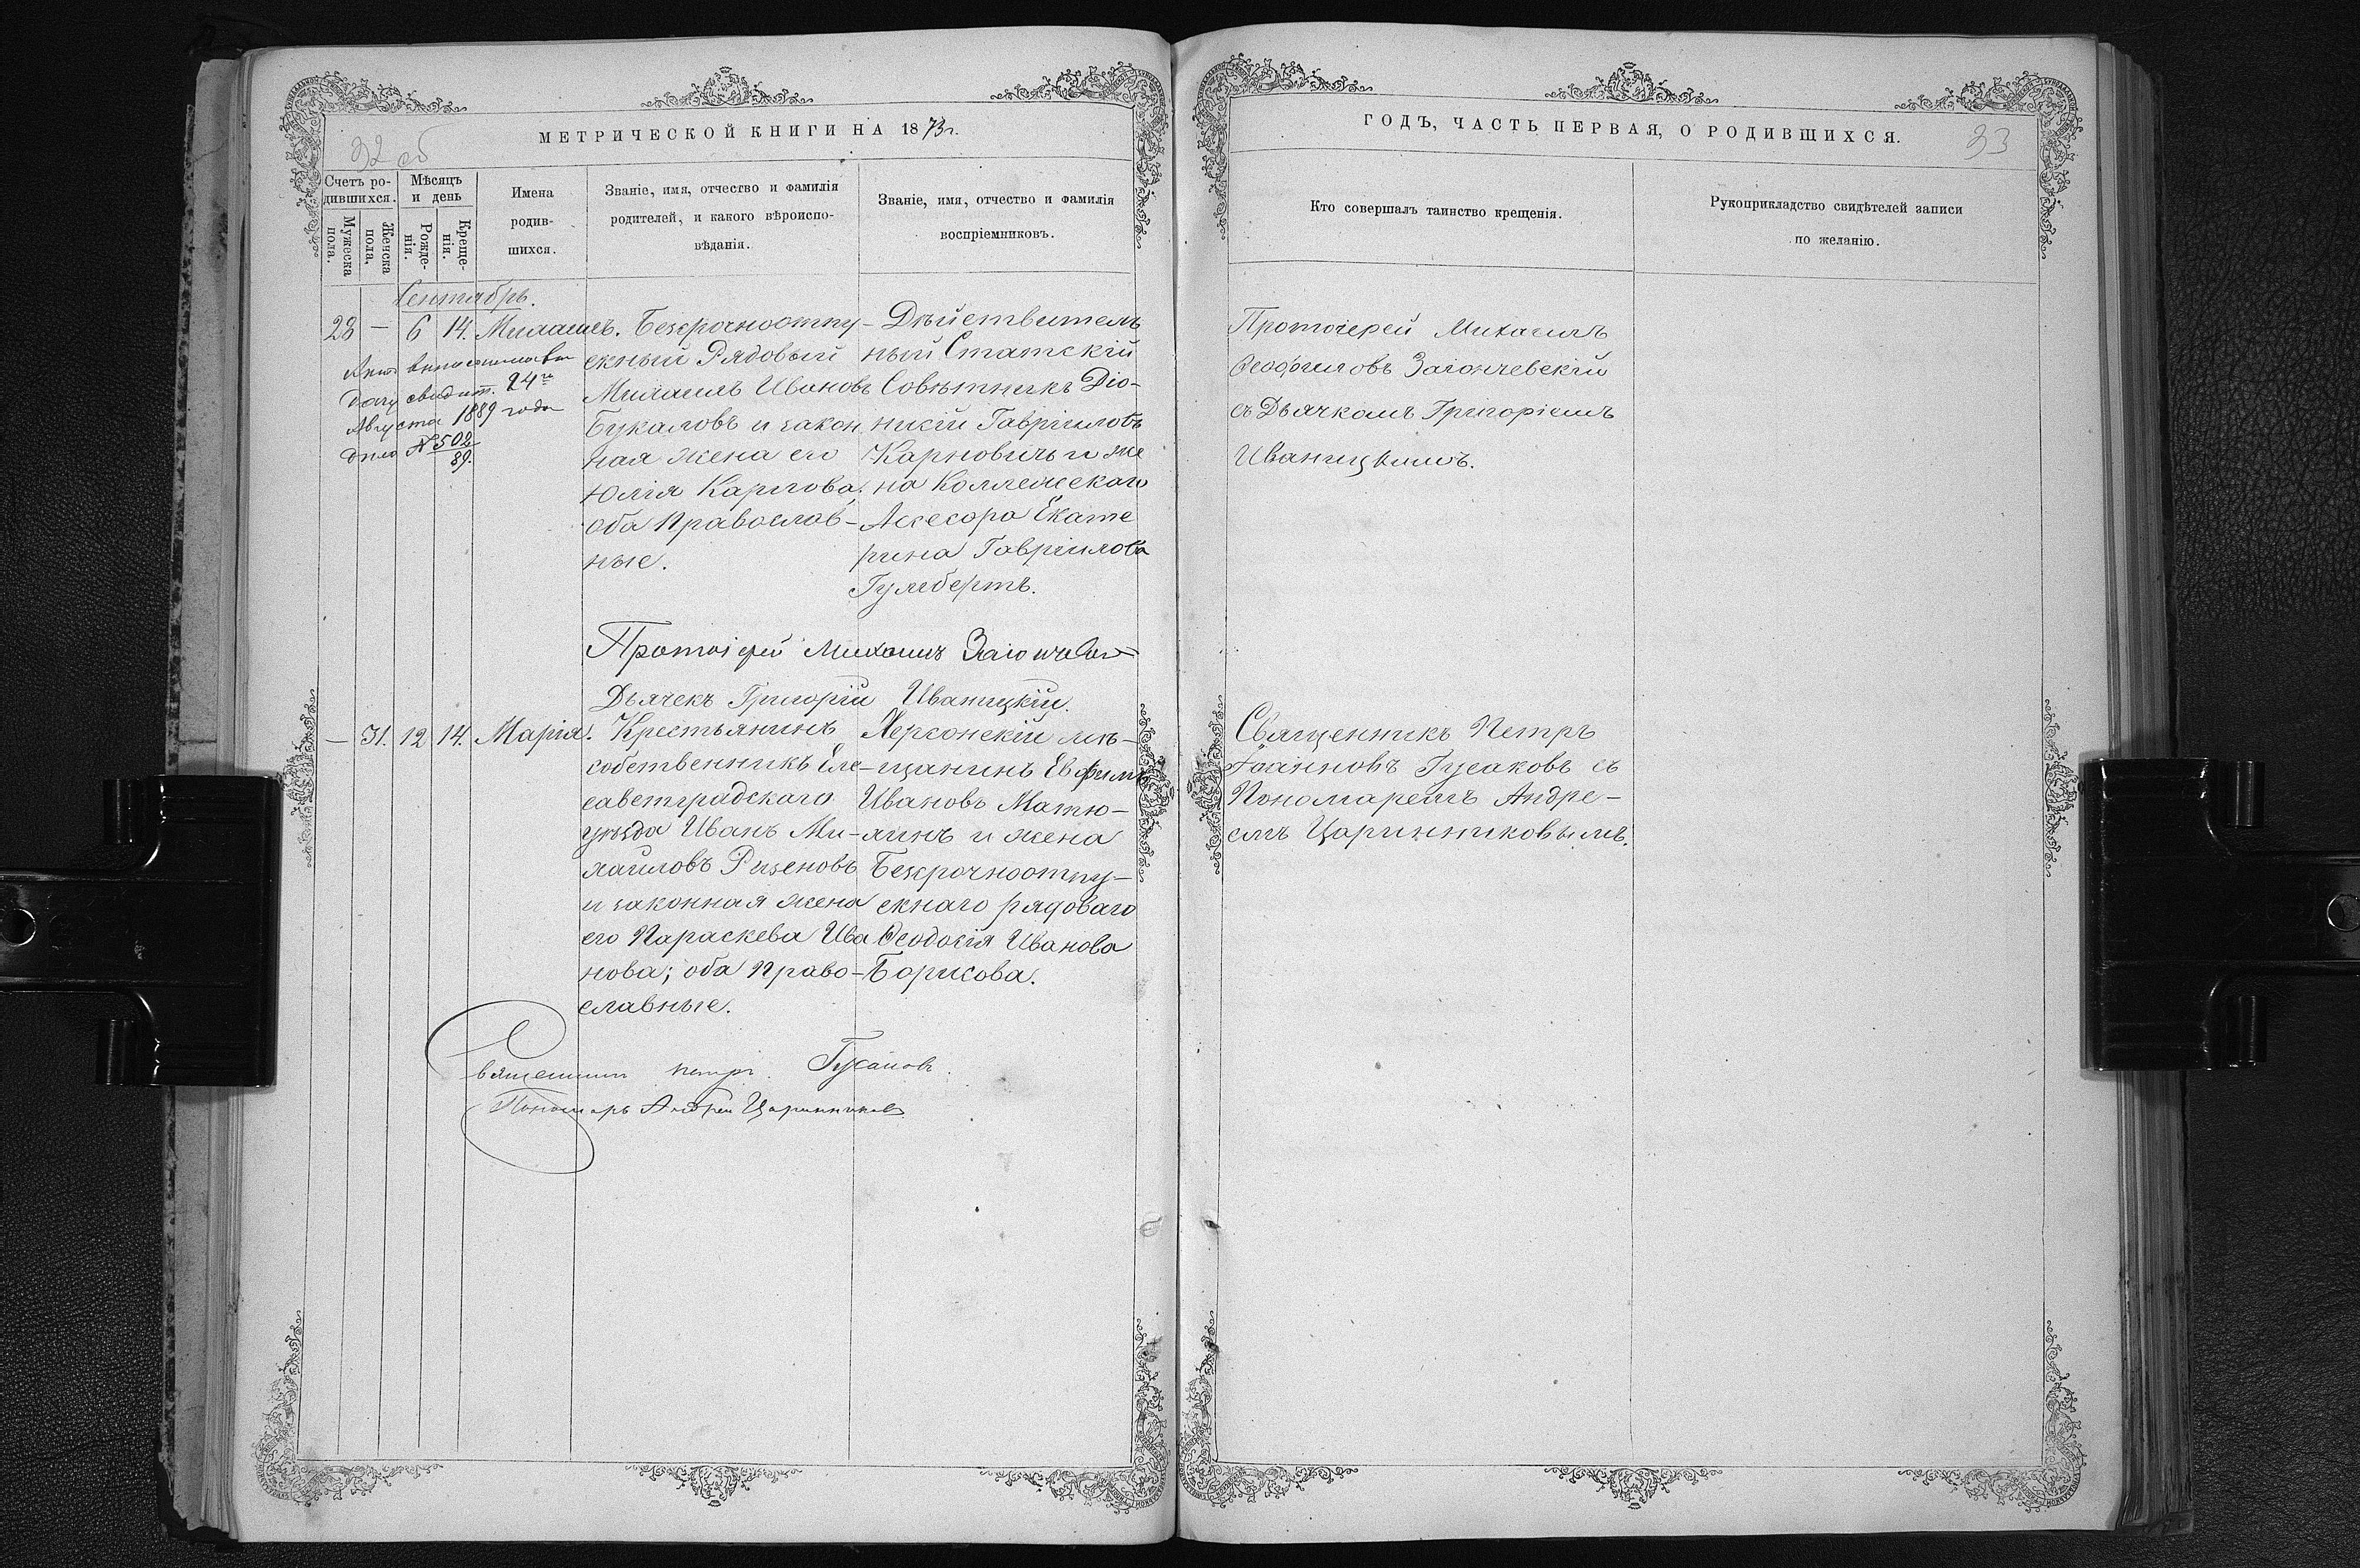 МЕТРИЧЕСКОЙ КНИГИ НА 1873 г.
32 об
Счетъ родившихся.
Мужеска пола.
Женска пола.
Мѣсяцъ и день
Рожденія.
Крещенія.
Имена родившихся.
Званіе, имя, отчество и фамилія
родителей, и какого вѣроиспо-
вѣданія.
Званіе, имя, отчество и фамилія
воспріемниковъ.
Сентябрь.
28 — 6 14. Михаилъ.
свидѣт. 24го
Августа 1889 года
дѣло № 502/89.
Безсрочноотпу-
скный Рядовый
Михаилъ Ивановъ
Букаловъ и закон
ная жена его
Юлія Карпова;
оба Православ-
ные.
Дѣйствитель
ный Статскій
Совѣтникъ Діо-
нисій Гавріиловъ
Карновичъ и же
на Коллежскаго
Ассесора Екате
рина Гавріилова
Гумбертъ.
Протоіерей Михаилъ
Дьячекъ Григорій Иваницкій.
— 31. 12 14. Марія.
Крестьянинъ
собственникъ Ели-
саветградскаго
уѣзда Иванъ Ми-
хаиловъ Ризеновъ
и законная жена
его Параскева Ива
нова; оба Право-
славные.
Херсонскій мѣ-
щанинъ Евфимъ
Ивановъ Матю-
хинъ и жена
Безсрочноотпу-
скнаго рядоваго
Ѳеодосія Иванова
Борисова.
Священникъ Петръ Гусаковъ.
Пономарь Андрей Царинниковъ
ГОДЪ, ЧАСТЬ ПЕРВАЯ, О РОДИВШИХСЯ.
33
Кто совершалъ таинство крещенія.
Рукоприкладство свидѣтелей записи
по желанію.
Протоіерей Михаилъ
Ѳеофиловъ Загончевскій
съ Дьячкомъ Григоріемъ
Иваницкимъ.
Священникъ Петръ
Іоанновъ Гусаковъ съ
Пономаремъ Андре-
емъ Царинниковымъ.